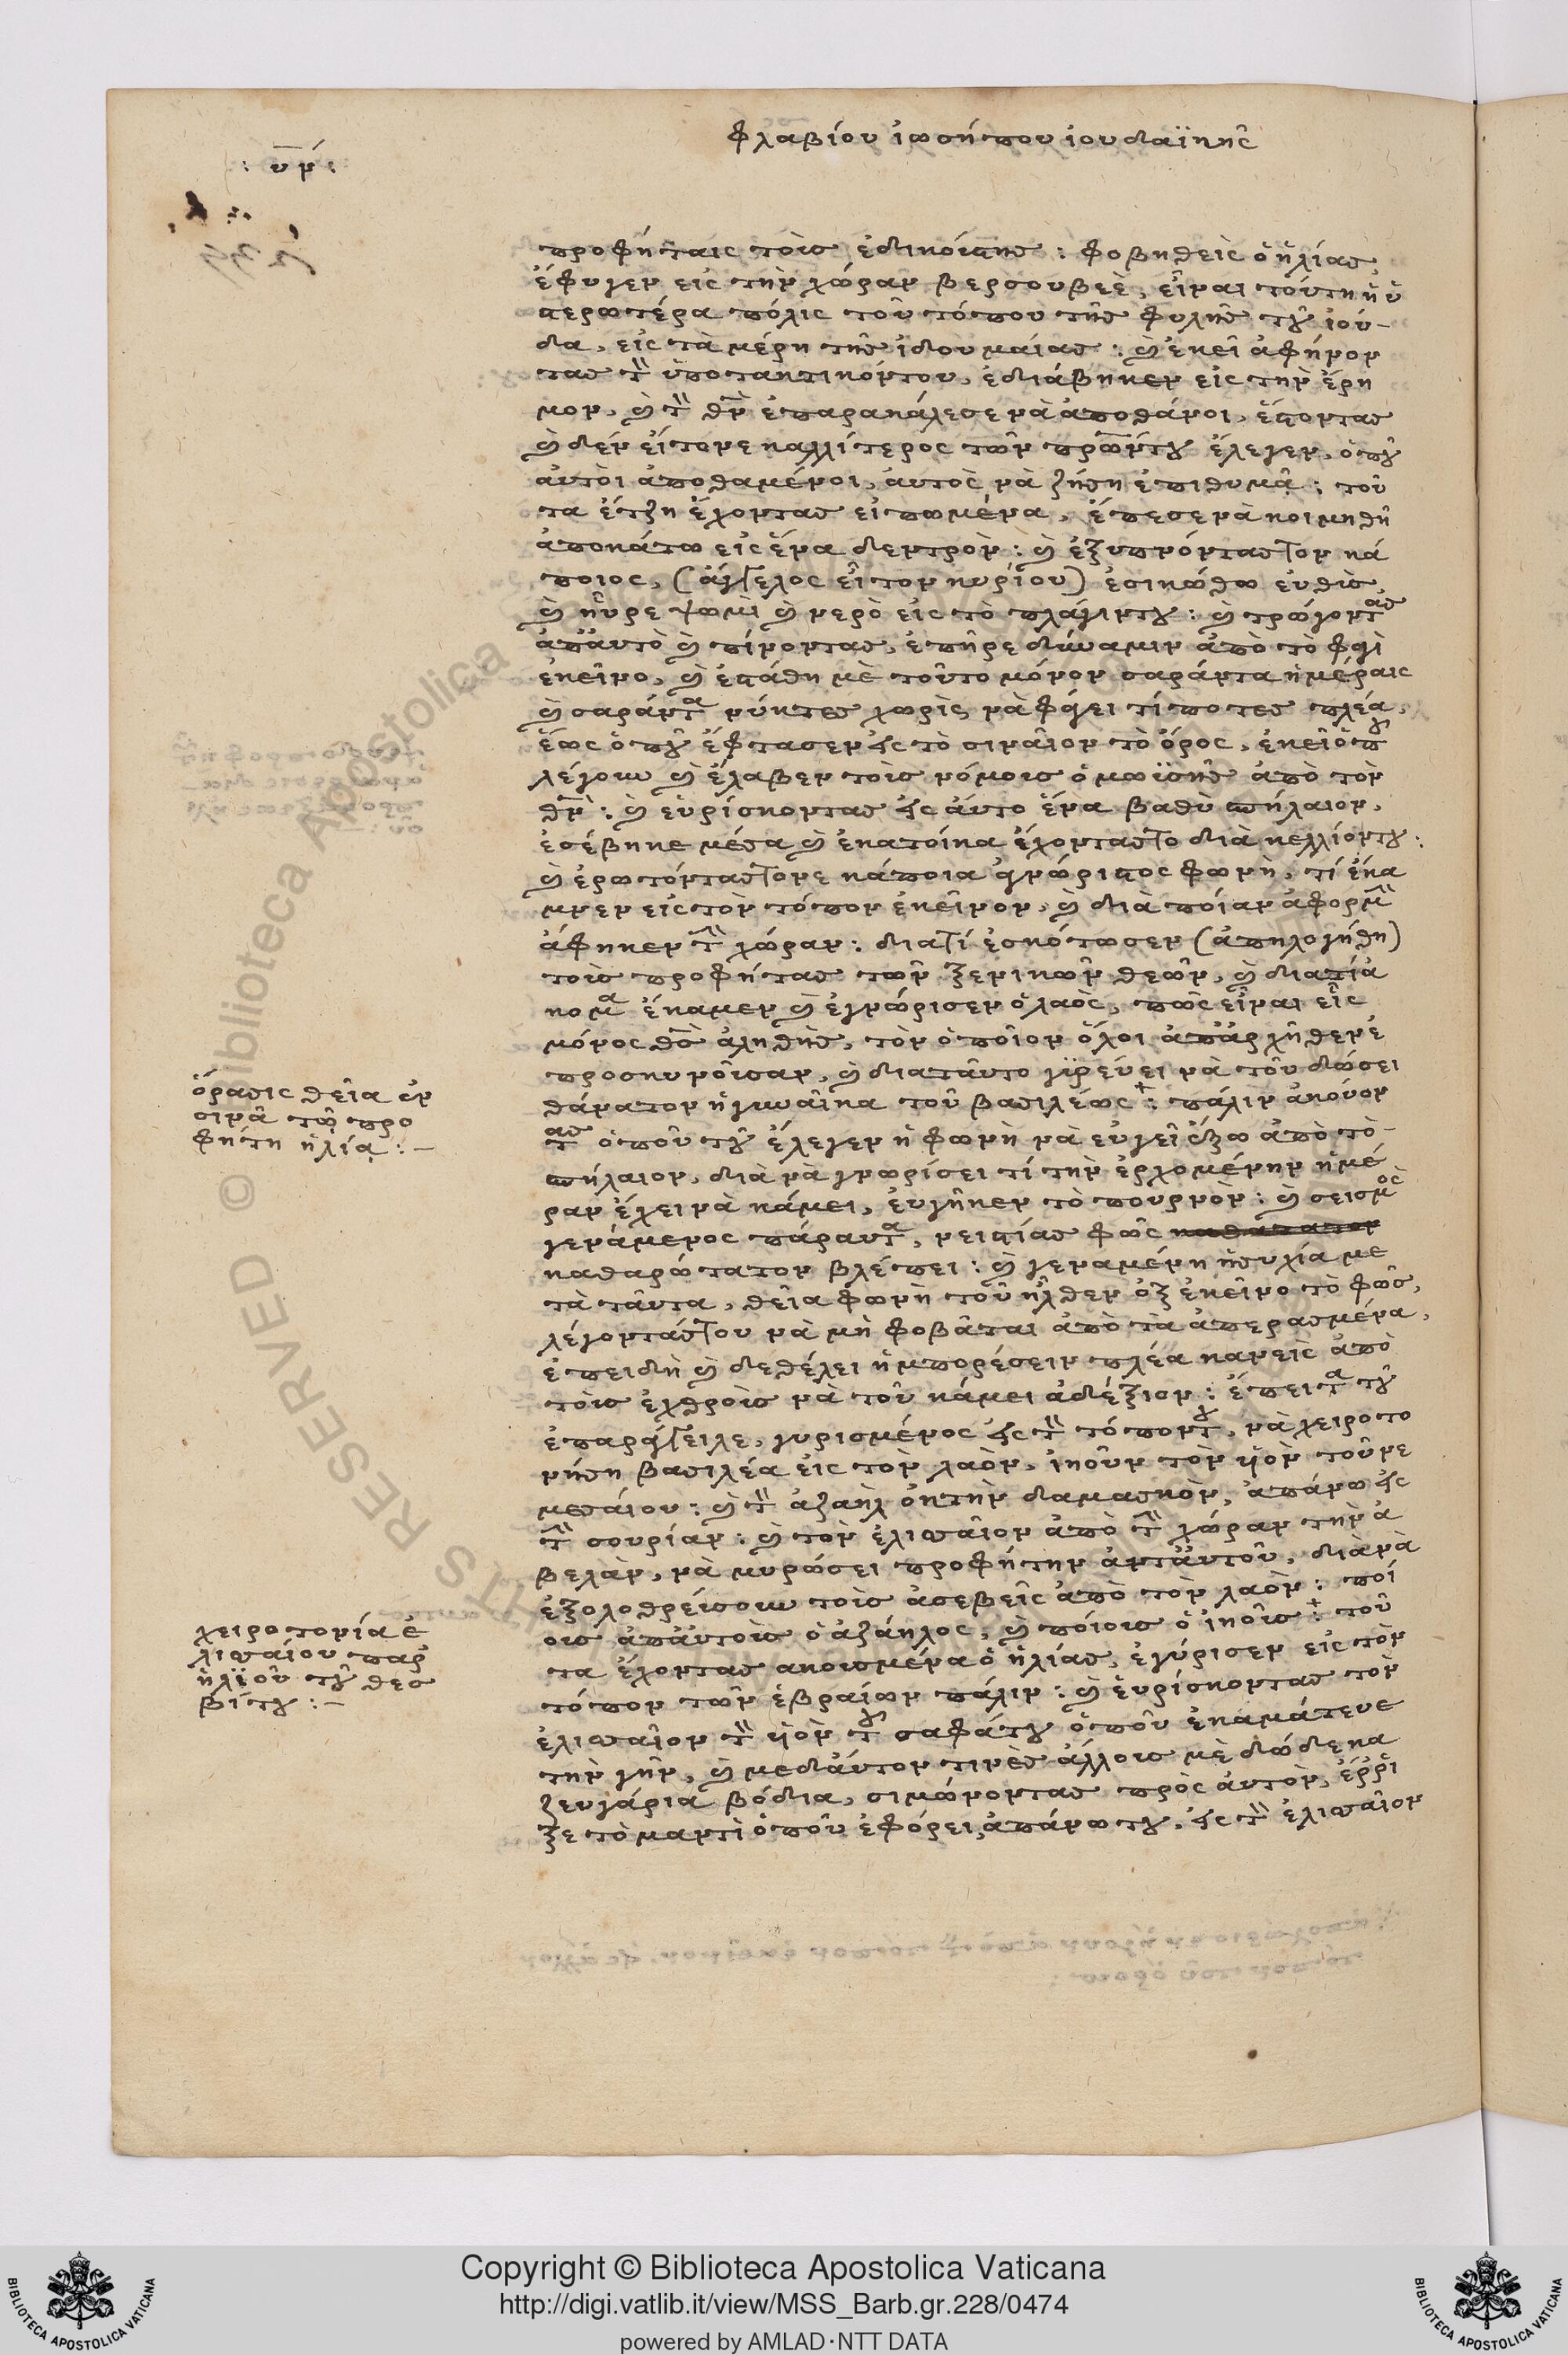 φλαβίου ἰωσήπου ἰουδαϊκῆς
: υν :
προφήταις τοὺς ἐδικούς της : φοβηθεὶς ὁ ἠλίας
ἔφυγεν εἰς τὴν χώραν βερσουβεὲ, εἶναι τούτη ἡ ὑ
στερωτέρα πόλις τοῦ τόπου τῆς φυλῆς τοῦ ἰού-
δα, εἰς τὰ μέρη τῆς ἰδουμαίας : καὶ ἐκεῖ ἀφήνον
τας τὸν ὑποτακτικόν του, ἐδιάβηκεν εἰς τὴν ἔρη
μον, καὶ τὸν θν ἐπαρακάλεσε νὰ ἀποθάνοι, ἔστοντας
καὶ δὲν εἴτονε καλλίτερος τῶν πρῶν του ἔλεγεν, ὁποῦ
αὐτοὶ ἀποθαμένοι, αὐτὸς νὰ ζήση ἐπιθυμᾷ : τοῦ
τα ἔτζη ἔχοντας εἰπωμένα, ἔπεσε νὰ κοιμηθῆ
ἀποκάτω εἰς ἕνα δεντρὸν : καὶ ἐξυπνόντας τον κά
ποιος, (ἄγγελος εἶτον κυρίου) ἐσικώθω εὐθὺς
καὶ ηὗρε ψωμὶ καὶ νερὸ εἰς τὸ πλάγιν του : καὶ τρώγοντας
ἀπαὐτὸ καὶ πίνοντας, ἐπῆρε δύναμιν ἀπὸ τὸ φαγὶ
ἐκεῖνο, καὶ ἐστάθη μὲ τοῦτο μόνον σαράντα ἡμέραις
καὶ σαράντα νύκτες χωρὶς νὰ φάγει τίποτες πλέα,
ἕως ὁποῦ ἔφτασεν εἰς τὸ σιναῖον τὸ ὄρος, ἐκεῖ ὁποῦ
λέγουν καὶ ἔλαβεν τοὺς νόμους ὁ μωϋσῆς ἀπὸ τὸν
θν : καὶ εὑρίσκοντας εἰς αὐτο ἕνα βαθὺ σπήλαιον,
ἐσέβηκε μέσα καὶ ἐκατοίκα ἔχοντας το διὰ κελλίον του :
καὶ ἐρωτόντας τονε κάποια ἀγνώριστος φωνὴ, τί ἔκα
μνεν εἰς τὸν τόπον ἐκεῖνον, καὶ διὰ ποίαν ἀφορμὴν
ἄφηκεν τὴν χώραν : διατί ἐσκότωσεν (ἀπηλογήθη)
τοὺς προφήτας τῶν ξενικῶν θεῶν, καὶ διατὶ ἀ
κομα ἔκαμεν καὶ ἐγνώρισεν ὁ λαὸς, πῶς εἶναι εἷς
μόνος θς ἀληθὴς, τὸν ὁποῖον ὅλοι ἀπαρχῆθεν ἐ
προσκυνοῦσαν, καὶ διαταῦτο γυρεύει νὰ τοῦ δώσει
θάνατον ἡ γυναῖκα τοῦ βασιλέως : πάλιν ἀκούον
τας ὁποῦ τοῦ ἔλεγεν ἡ φωνὴ νὰ εὐγεῖ ἔξω ἀπὸ τὸ-
σπήλαιον, διὰ νὰ γνωρίσει τί τὴν ἐρχομένην ἡμέ
ραν ἔχει νὰ κάμει, ἐυγῆκεν τὸ πουρνὸν : καὶ σεισμὸς
γενάμενος πάραυτα, νειστίας φῶς
καθαρώτατον βλέπει : καὶ γεναμένη ἡσυχία με
τὰ ταῦτα, θεῖα φωνὴ τοῦ ἦλθεν ἀξ ἐκεῖνο τὸ φῶς,
λέγοντάς του νὰ μὴ φοβᾶται ἀπὸ τὰ ἀπερασμένα,
ἐπειδὴ καὶ δεθέλει ἠμπορέσειν πλέα κανεὶς ἀπὸ
τοὺς ἐχθροὺς νὰ τοῦ κάμει ἀδέξιον : ἔπειτα τοῦ
ἐπαράγγειλε, γυρισμένος εἰς τὸν τόπον του, νὰ χειροτο
νήση βασιλέα εἰς τὸν λαὸν, ἰηοῦν τὸν ὑιὸν τοῦ νε
μεσαίου : καὶ τὸν ἀζαὴλ ἐκ τὴν δαμασκὸν, ἀπάνω εἰς
τὴν σουρίαν : καὶ τὸν ἐλισσαῖον ἀπὸ τὴν χώραν τὴν ἀ
βελὰν, νὰ μυρώσει προφήτην ἀνταὐτοῦ, διὰ νὰ
ἐξολοθρεύσουν τοὺς ἀσεβεῖς ἀπὸ τὸν λαὸν : ποί
ους ἀπαὐτοὺς ὁ ἀζάηλος, καὶ ποίους ὁ ἰηοῦς : τοῦ
τα ἔχοντας ακουσμένα ὁ ἠλίας, ἐγύρισεν εἰς τὸν
τόπον τῶν ἑβραίων πάλιν : καὶ εὑρίσκοντας τὸν
ἐλισσαῖον τὸν ὑιὸν τοῦ σαφάτου ὁποῦ ἐκαμάτευε
τὴν γῆν, καὶ μεδαύτον τινὲς ἄλλους μὲ δώδεκα
ζευγάρια βόδια, σιμώνοντας πρὸς αὐτὸν, ἔρρι
ξε τὸ μαντὶ ὁποῦ ἐφόρει, ἀπάνω του, εἰς τὸν ἐλισσαῖον
ὅρασις θεῖα ἐν
σινᾷ τῷ προ
φήτη ἠλίᾳ : -
χειροτονία ἐ
λισσαίου παρ
ἠλϊοῦ τοῦ θεσ
βίτου : -
Copyright © Biblioteca Apostolica Vaticana
http://digi.vatlib.it/view/MSS_Barb.gr.228/0474
powered by AMLAD·NTT DATA